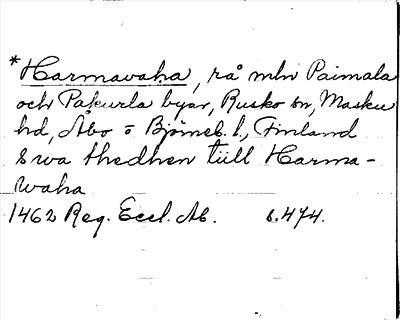 *Harmavaha, rå mln Paimala
och Pakurla byar, Rusko sn, Masku
hd, Åbo o Björneb. l., Finland
Swa thedhen tiill Harma-
waha
1462 Reg. Eccl. Ab. s. 474.